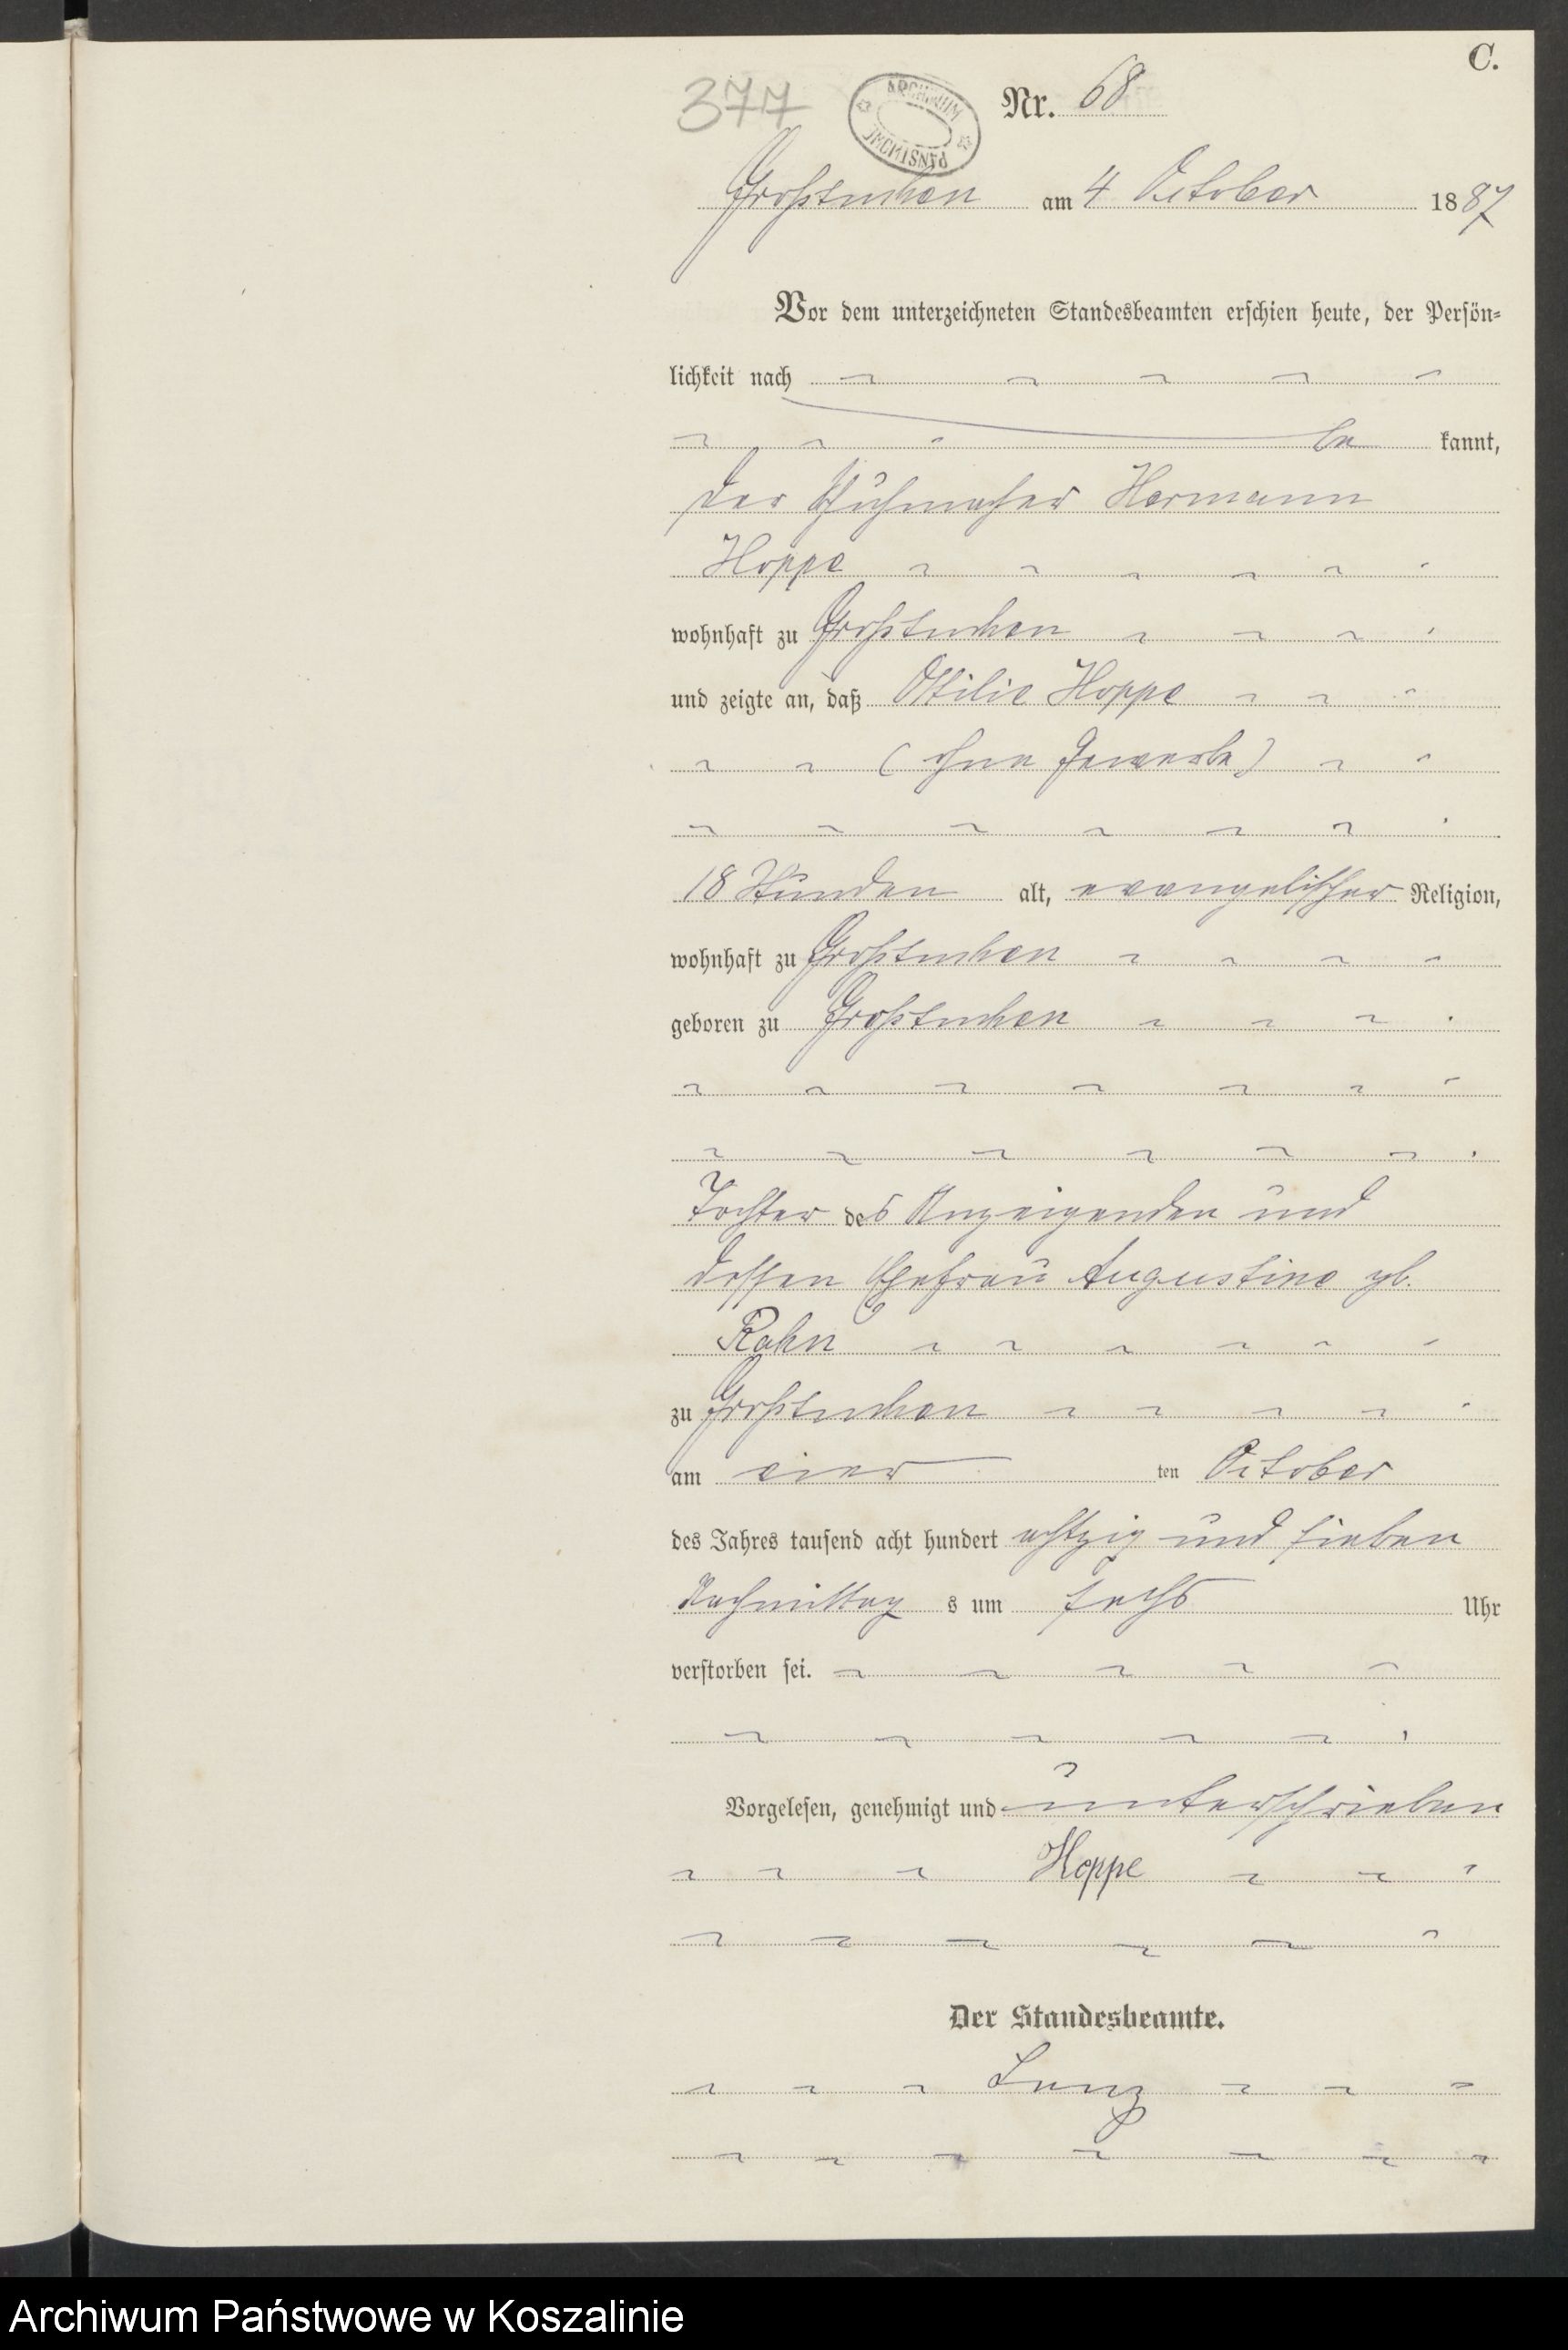 C.
377
ARCHIWUM PAŃSTWOWE
Nr. 68
Großtuchen am 4 October 1887
Vor dem unterzeichneten Standesbeamten erschien heute, der Persön-
lichkeit nach
be kannt,
der Schuhmacher Hermann
Hoppe
wohnhaft zu Großtuchen
und zeigte an, daß Ottilie Hoppe
(ohne Gewerbe)
18 Stunden alt, evangelischer Religion,
wohnhaft zu Großtuchen
geboren zu Großtuchen
Tochter des Anzeigenden und
dessen Ehefrau Augustine gb.
Rahn
zu Großtuchen
am vier ten October
des Jahres tausend acht hundert achtzig und sieben
Nachmittag s um sechs Uhr
verstorben sei.
Vorgelesen, genehmigt und unterschrieben
Hoppe
Der Standesbeamte.
Archiwum Państwowe w Koszalinie